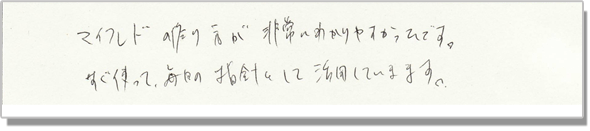 マイクレドの作り方が非常にわかりやすかったです。
すぐ使って、毎日の指針として活用しています。